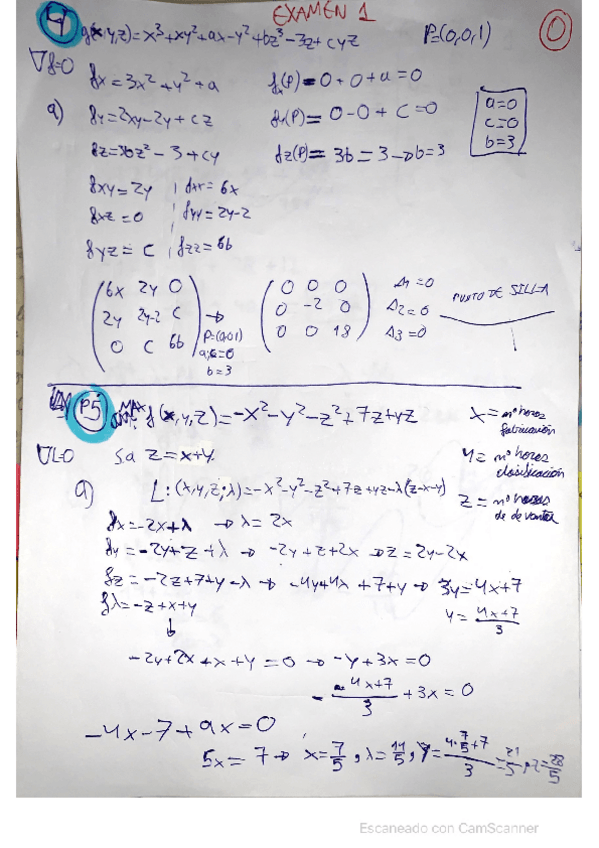 EXAMEN 1
4 g(x,y,z)=x³+xy²+ax-y²+bz³-3z+cyz P=(0,0,1) 0
∇f=0
fx=3x²+y²+a fx(P)=0+0+a=0
a) fy=2xy-2y+cz fy(P)=0-0+c=0
a=0
c=0
b=3
fz=3bz²-3+cy fz(P)=3b=3→b=3
fxy=2y fxx=6x
fxz=0 fyy=2y-2
fyz=c fzz=6b
6x 2y 0
2y 2y-2 c
0 c 6b
→
P=(0,0,1)
b=3
0 0 0
0 -2 0
0 0 18
Δ1=0
Δ2=0
Δ3=0
PUNTO DE SILLA
P5 MAX f(x,y,z)=-x²-y²-z²+7z+yz
s.a z=x+y
X=nº horas fabricación
Y=nº horas clasificación
Z=nº horas de venta
∇L=0
a) L:(x,y,z,λ)=-x²-y²-z²+7z+yz-λ(z-x-y)
fx=-2x+λ → λ=2x
fy=-2y+z+λ → -2y+z+2x → z=2y-2x
fz=-2z+7+y-λ → -4y+4x+7+y → 3y=4x+7
fλ=-z+x+y
y=4x+7/3
-2y+2x+x+y=0 → -y+3x=0
-4x+7/3+3x=0
-4x-7+9x=0
5x=7 → x=7/5, λ=14/5, y=4·7/5+7/3=21/5, z=28/5
Escaneado con CamScanner